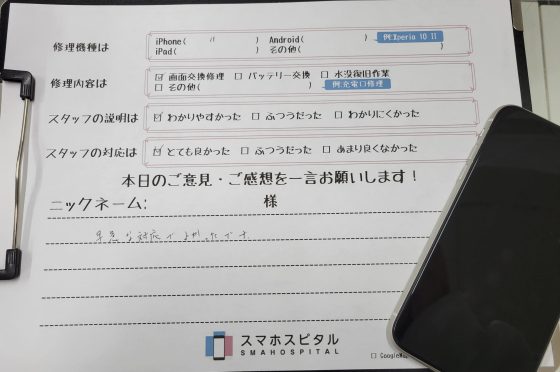 iPhone( 11 ) Android( ) 例:Xperia 10 II
修理機種は
iPad( ) その他( )
☑ 画面交換修理 □ バッテリー交換 □ 水没復旧作業
修理内容は
□ その他( ) 例:充電口修理
スタッフの説明は ☑ わかりやすかった □ ふつうだった □ わかりにくかった
スタッフの対応は ☑ とても良かった □ ふつうだった □ あまり良くなかった
本日のご意見・ご感想を一言お願いします!
ニックネーム: 様
早急な対応でよかったです。
スマホスピタル
SMAHOSPITAL
□ GoogleMap